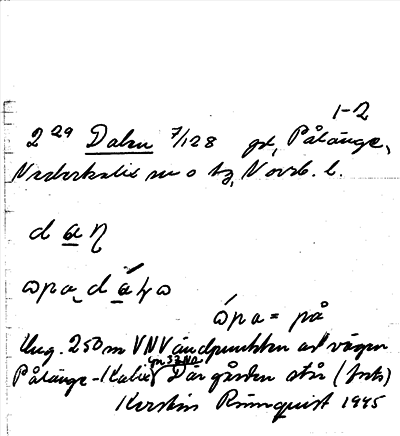 1-2
2 29 Dalen 7/128 gd, Pålänge,
Nederkalix sn o tg, Norrb. l.
d a η
ωpa d á ω
ώpa = på
Ung. 250 m VNV ändpunkten av vägen
Pålänge-Kalix Där gården står (
Kerstin Rönnquist 1945